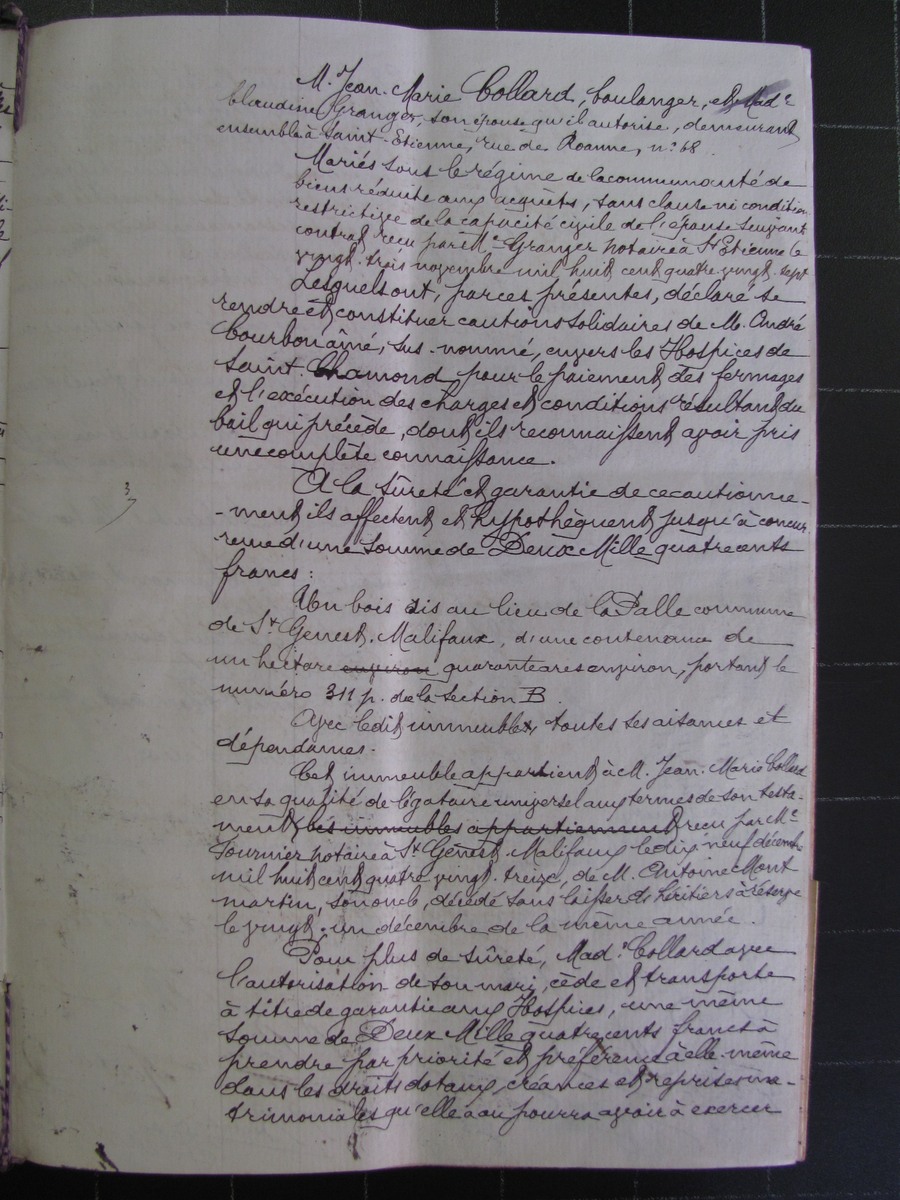 M. Jean-Marie Collard, boulanger, et Mad.e
Claudine Granger, son épouse qu'il autorise, demeurant
ensemble à Saint-Etienne, rue de Roanne, n° 68.
Mariés sous le régime de la communauté de
biens réduite aux acquêts, sans clause ni condition
restrictive de la capacité civile de l'épouse suivant
contrat reçu par Me Granger notaire à St Etienne le
vingt-trois novembre mil huit cent quatre vingt-sept
Lesquels ont, par ces présentes, déclaré se
rendre et constituer cautions solidaires de M. André
Bourbon aîné, sus-nommé, envers les Hospices de
Saint-Chamond pour le paiement des fermages
et l'exécution des charges et conditions résultant du
bail qui précède, dont ils reconnaissent avoir pris
une complète connaissance.
A la sûreté et garantie de ce cautionne-
-ment ils affectent et hypothèquent jusqu'à concur
rence d'une somme de Deux Mille quatre cents
francs :
Un bois sis au lieu de la Palle commune
de St Genest-Malifaux, d'une contenance de
un hectare environ quarante ares environ, portant le
numéro 311 p. de la section B.
Avec ledit immeuble, toutes ses aisances et
dépendances.
Cet immeuble appartient à M. Jean-Marie Collard
en sa qualité de légataire universel aux termes de son testa-
ment ces immeubles appartiennent reçu par Me
Fournier notaire à St Genest-Malifaux le dix neuf décemb.
mil huit cent quatre vingt-treize, de M. Antoine Mont
martin, son oncle, décédé sans laisser d'héritiers à réserve
le vingt-un décembre de la même année.
Pour plus de sûreté, Mad.e Collard avec
l'autorisation de son mari, cède et transporte
à titre de garantie aux Hospices, une même
somme de Deux Mille quatre cents francs à
prendre par priorité et préférence à elle-même
dans les droits dotaux, créances et reprises ma-
trimoniales qu'elle a ou pourra avoir à exercer